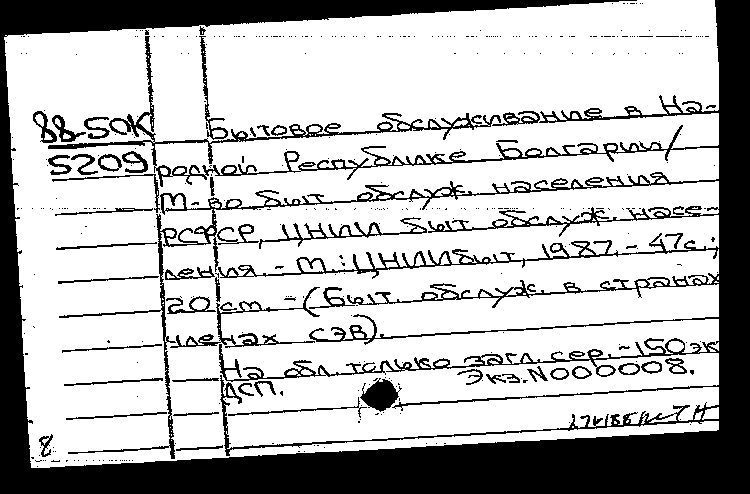 88-50К
5209
Бытовое обслуживание в На-
родной Республике Болгарии/
М-во быт. обслуж. населения
РСФСР, ЦНИИ быт. обслуж. насе-
ления. - М.: ЦНИИбыт, 1987. - 47с.;
20 см. - (Быт. обслуж. в странах
членах СЭВ).
На обл. только загл. сер. - 150 эк
ДСП. Экз. N000008.
8